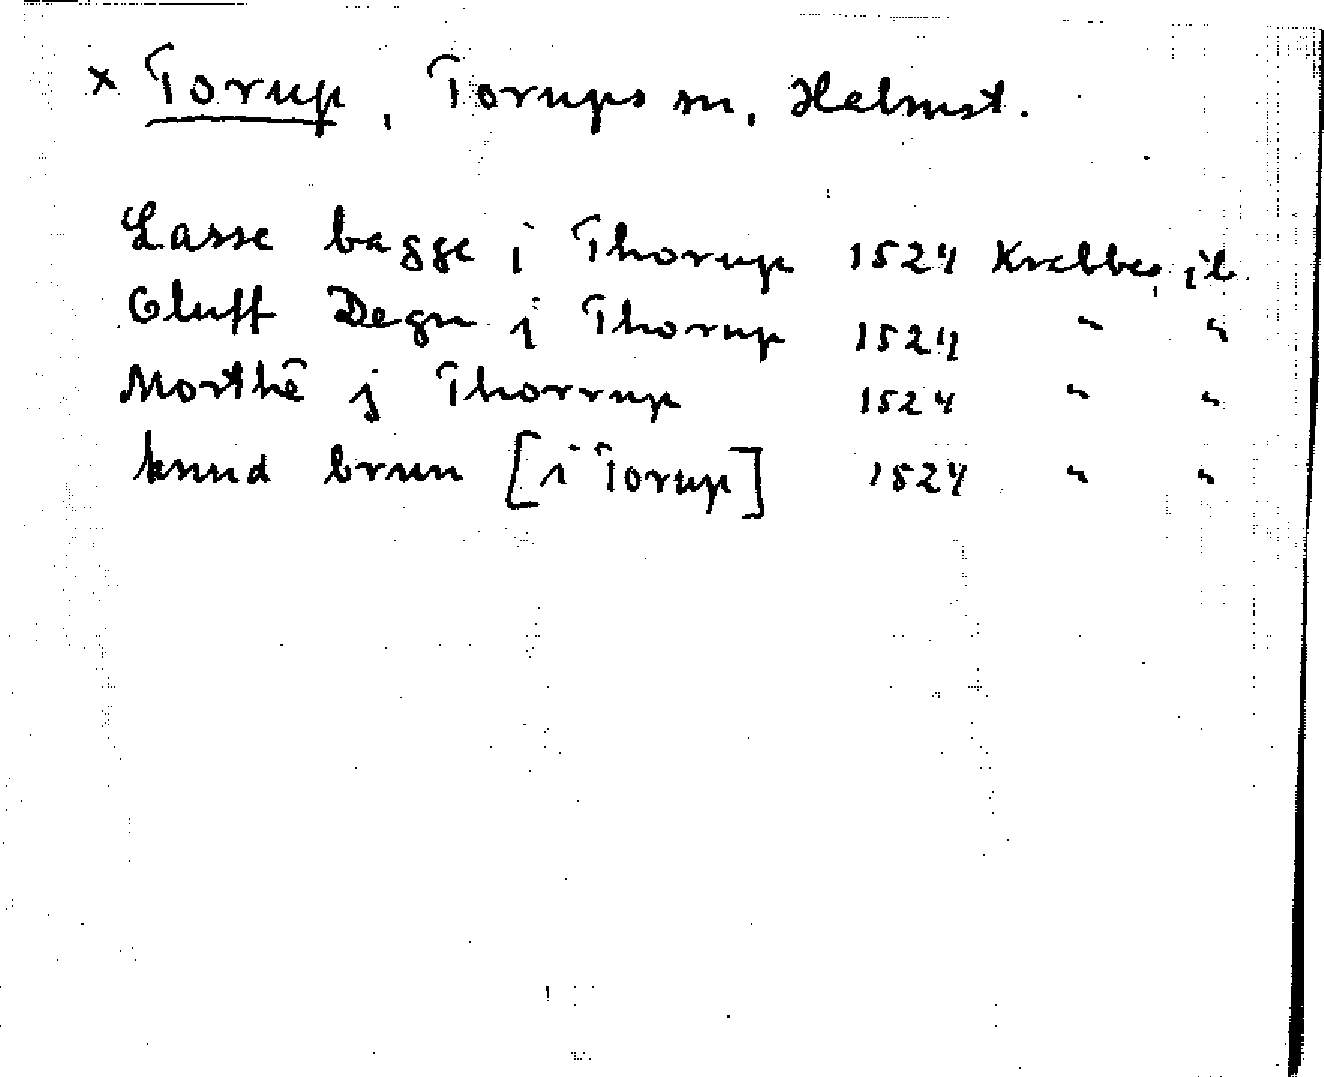 x Torup, Torups sn, Halmst.
Lasse bagge i Thorup 1524 Krabbes jb
Oluff Degn j Thorup 1524 " "
Morthē j Thorrup 1524 " "
knud brun [i Torup] 1524 " "